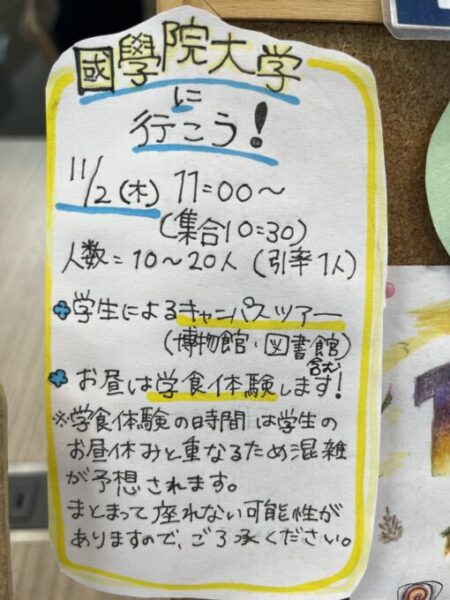 國學院大学
に
行こう!
11/2(木) 11:00~
(集合10:30)
人数=10~20人(引率1人)
学生によるキャンパスツアー
(博物館・図書館含む)
お昼は学食体験します!
※学食体験の時間は学生の
お昼休みと重なるため混雑
が予想されます。
まとまって座れない可能性が
ありますので、ご了承ください。